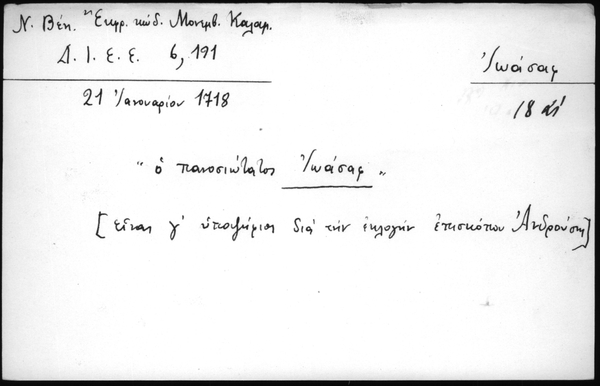 Ν. Βέη. "Εκφρ. κώδ. Μονεμβ. Καλαμ.
Δ. Ι. Ε. Ε. 6, 191
Ἰωάσαφ
21 Ἰανουαρίου 1718
18 αἰ
"ὁ πανοσιώτατος Ἰωάσαφ"
[εἶναι γ' ὑποψήφιος διά τήν ἐκλογήν ἐπισκόπου Ἀνδρούσης]